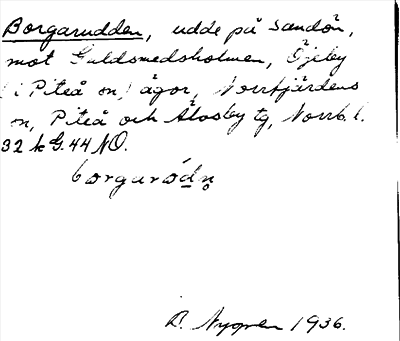 Borgarudden, udde på Sandön,
mot Guldsmedsholmen, Öjeby
(i Piteå sn) ägor, Norrfjärdens
sn, Piteå och Älvsby tg, Norrb. l.
32 k G. 44 NO.
borgarodn
B. Nygren 1936.